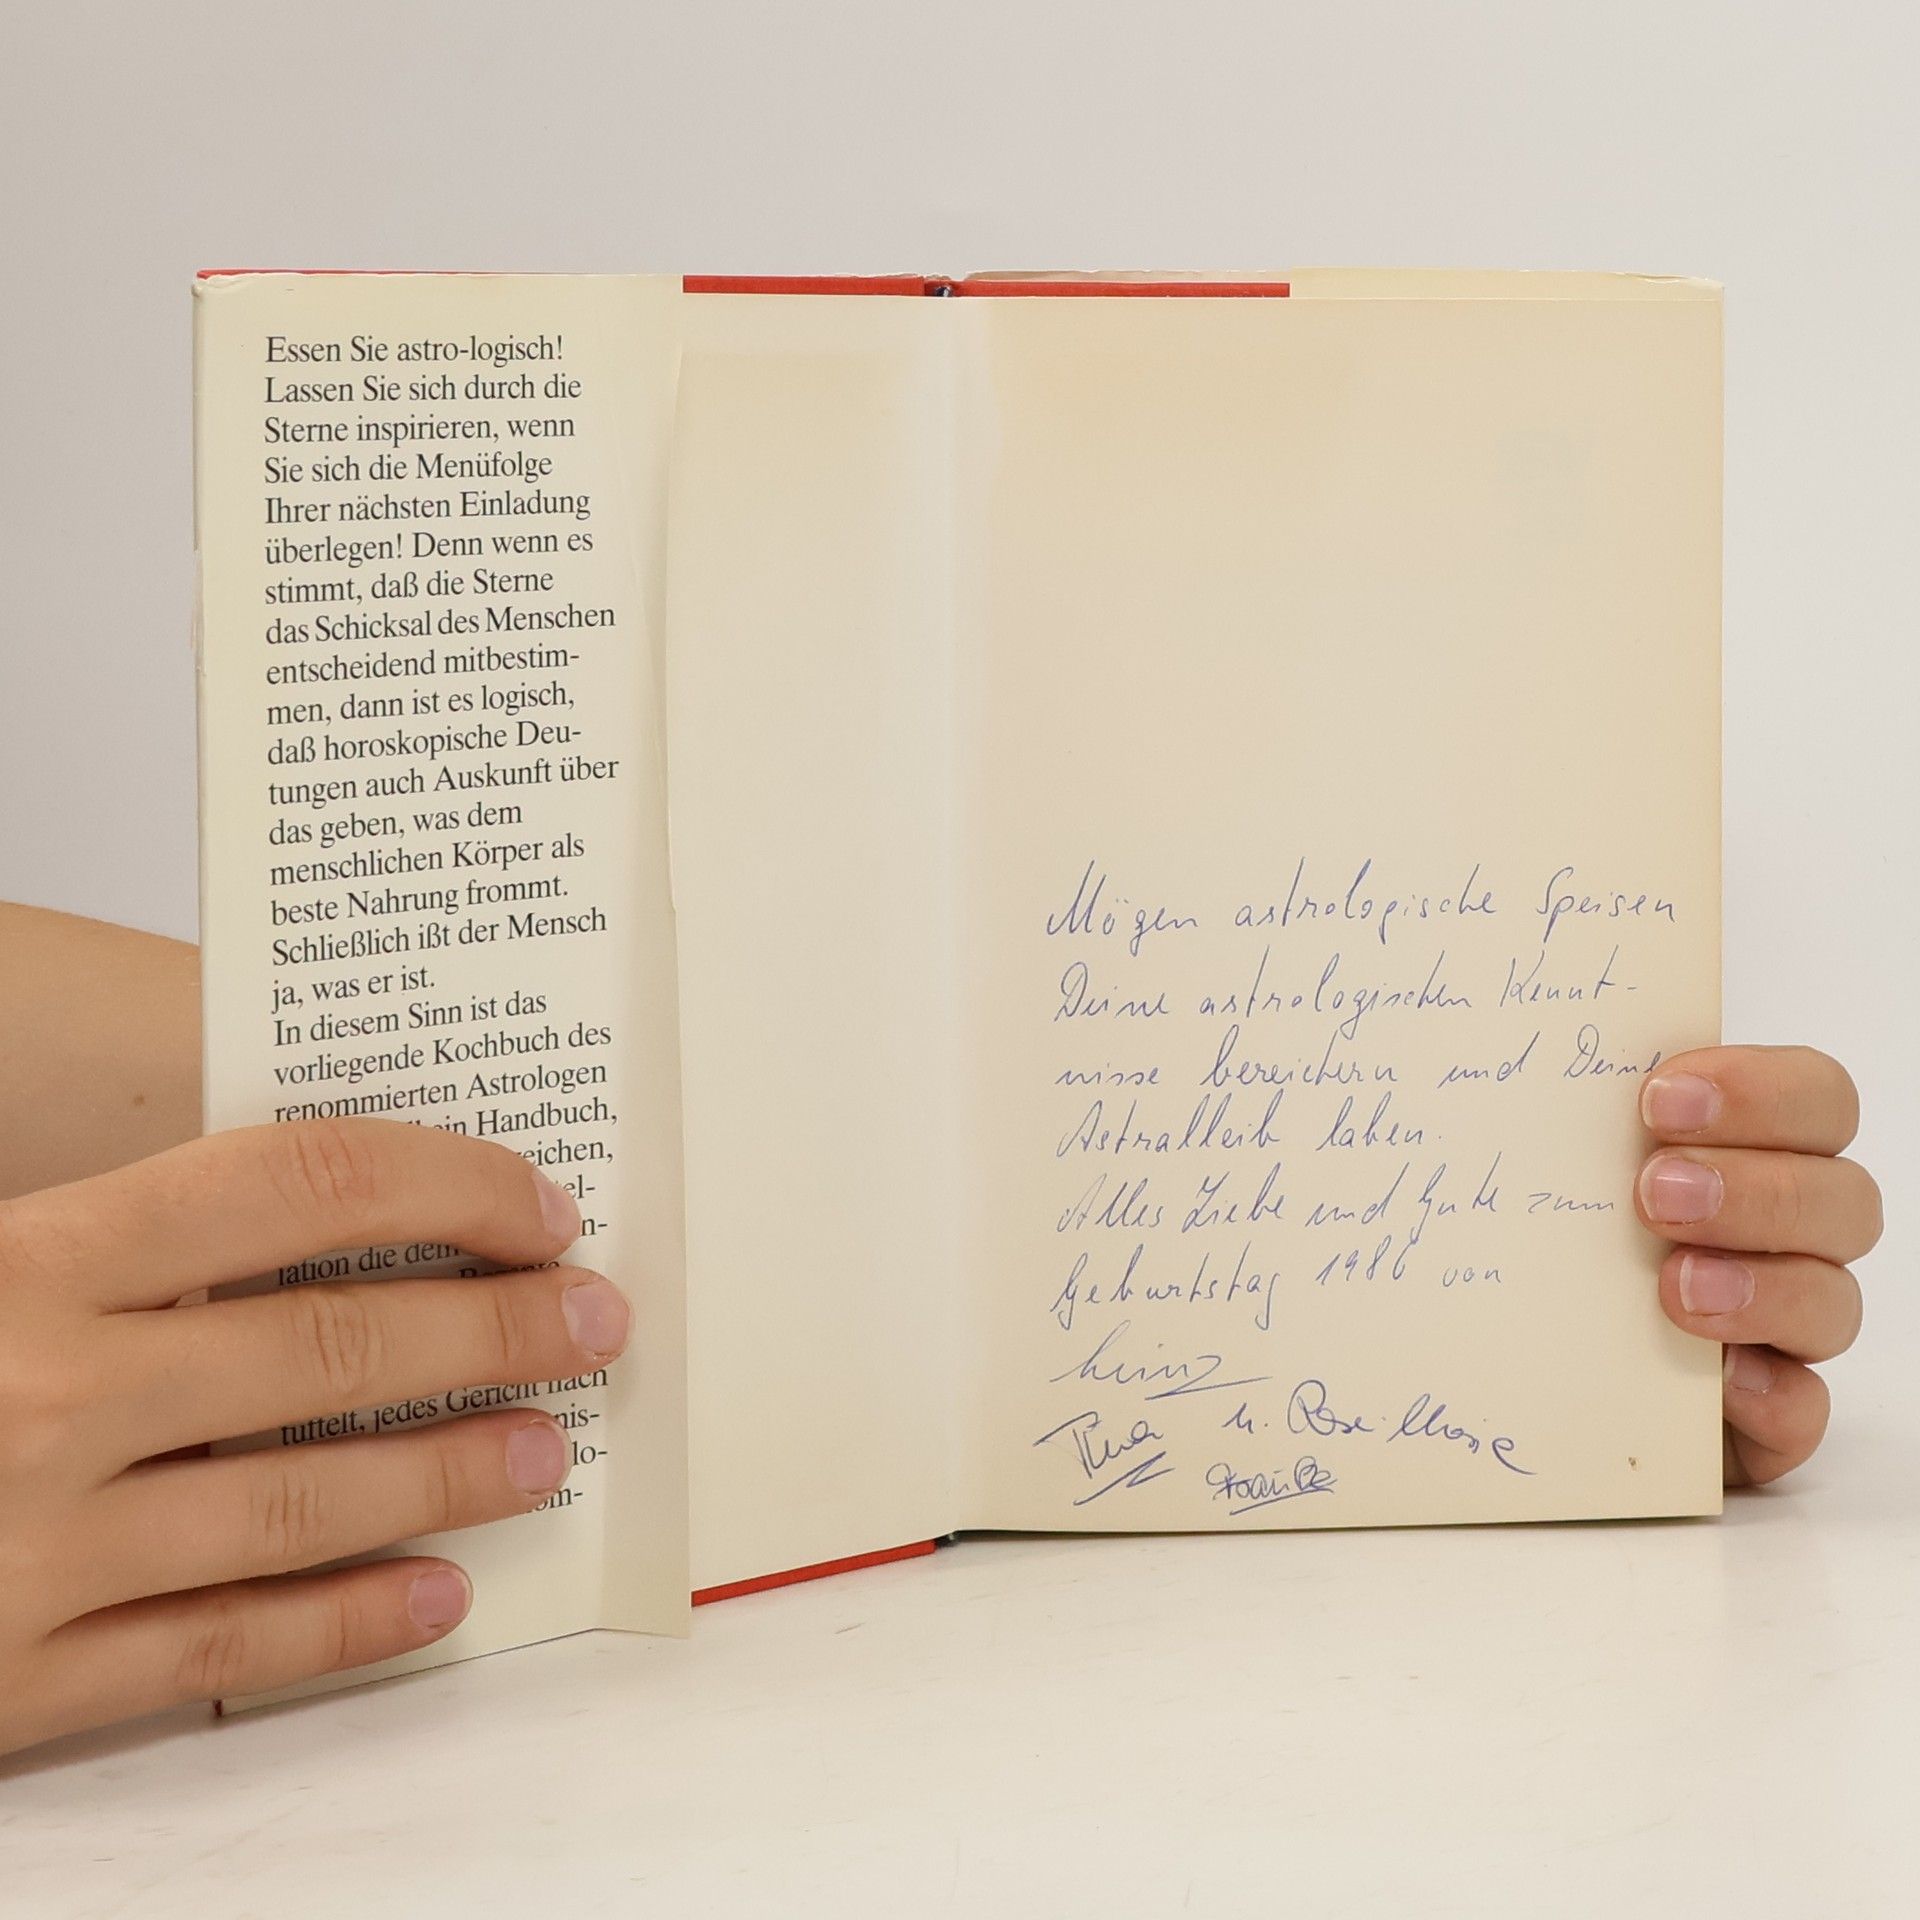 Essen Sie astro-logisch!
Lassen Sie sich durch die
Sterne inspirieren, wenn
Sie sich die Menüfolge
Ihrer nächsten Einladung
überlegen! Denn wenn es
stimmt, daß die Sterne
das Schicksal des Menschen
entscheidend mitbestim-
men, dann ist es logisch,
daß horoskopische Deu-
tungen auch Auskunft über
das geben, was dem
menschlichen Körper als
beste Nahrung frommt.
Schließlich ißt der Mensch
ja, was er ist.
In diesem Sinn ist das
vorliegende Kochbuch des
renommierten Astrologen
ein Handbuch,
eichen,
el-
n-
lation die dem
tüftelt, jedes Gericht nach
nis-
lo-
om-
Mögen astrologische Speisen
Deine astrologischen Kennt-
nisse bereichern und Deine
Astralleib laben.
Alles Liebe und Gute zum
Geburtstag 1986 von
Heinz
u. Rose-Marie
Frauke